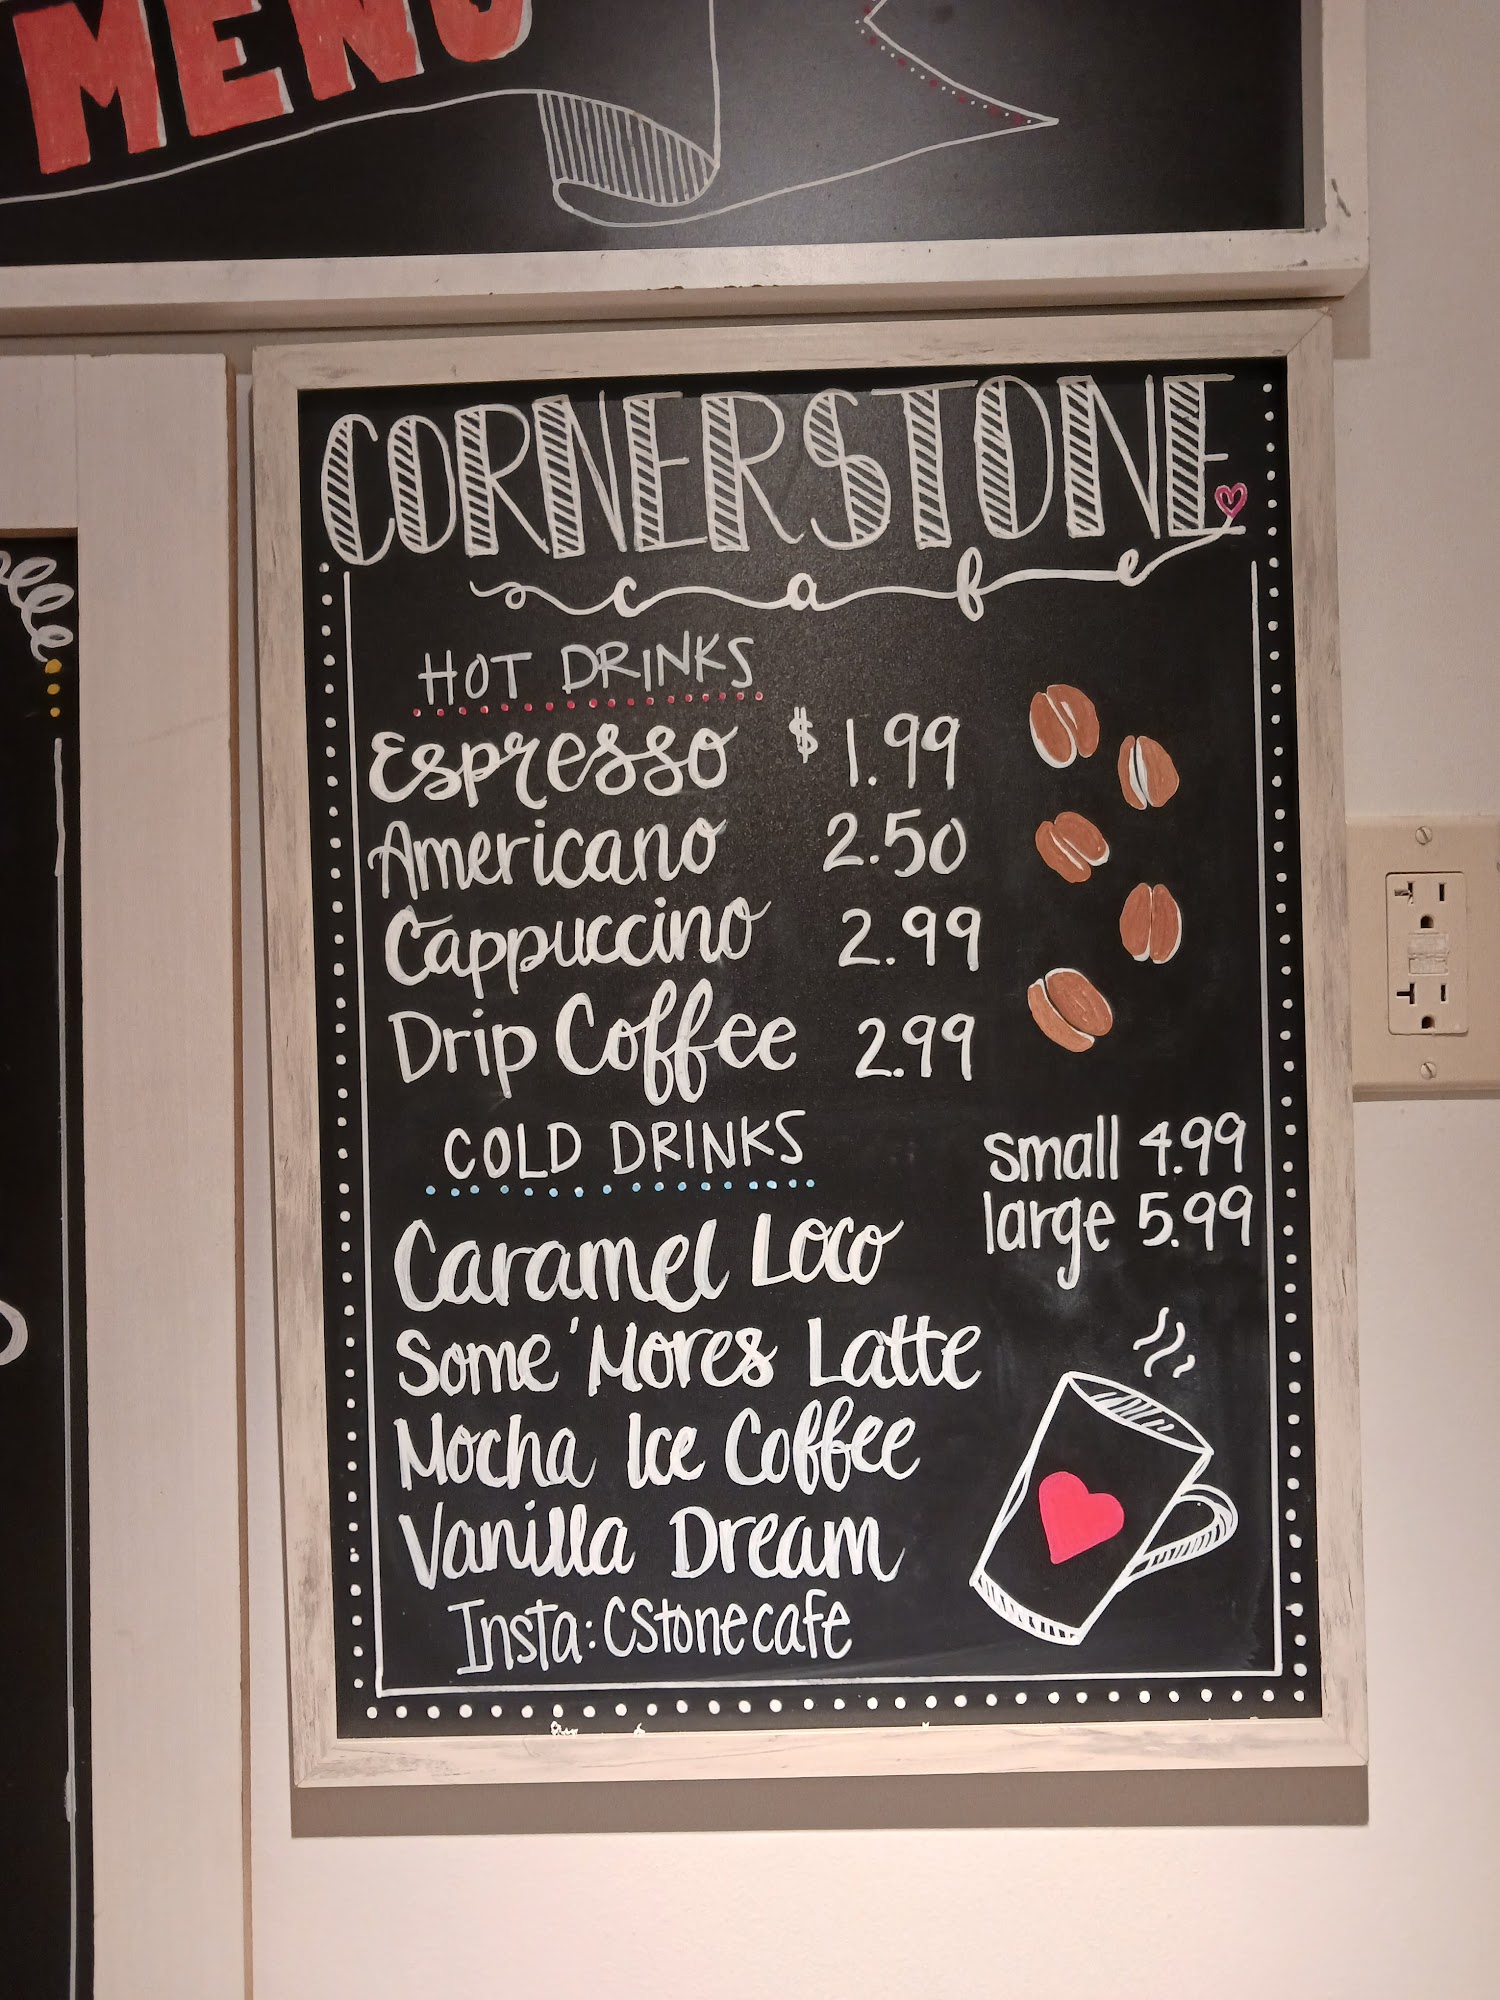 MENU
CORNERSTONE
cafe
HOT DRINKS
Espresso $1.99
Americano 2.50
Cappuccino 2.99
Drip Coffee 2.99
COLD DRINKS
small 4.99
large 5.99
Caramel Loco
Some'Mores Latte
Mocha Ice Coffee
Vanilla Dream
Insta: CStonecafe